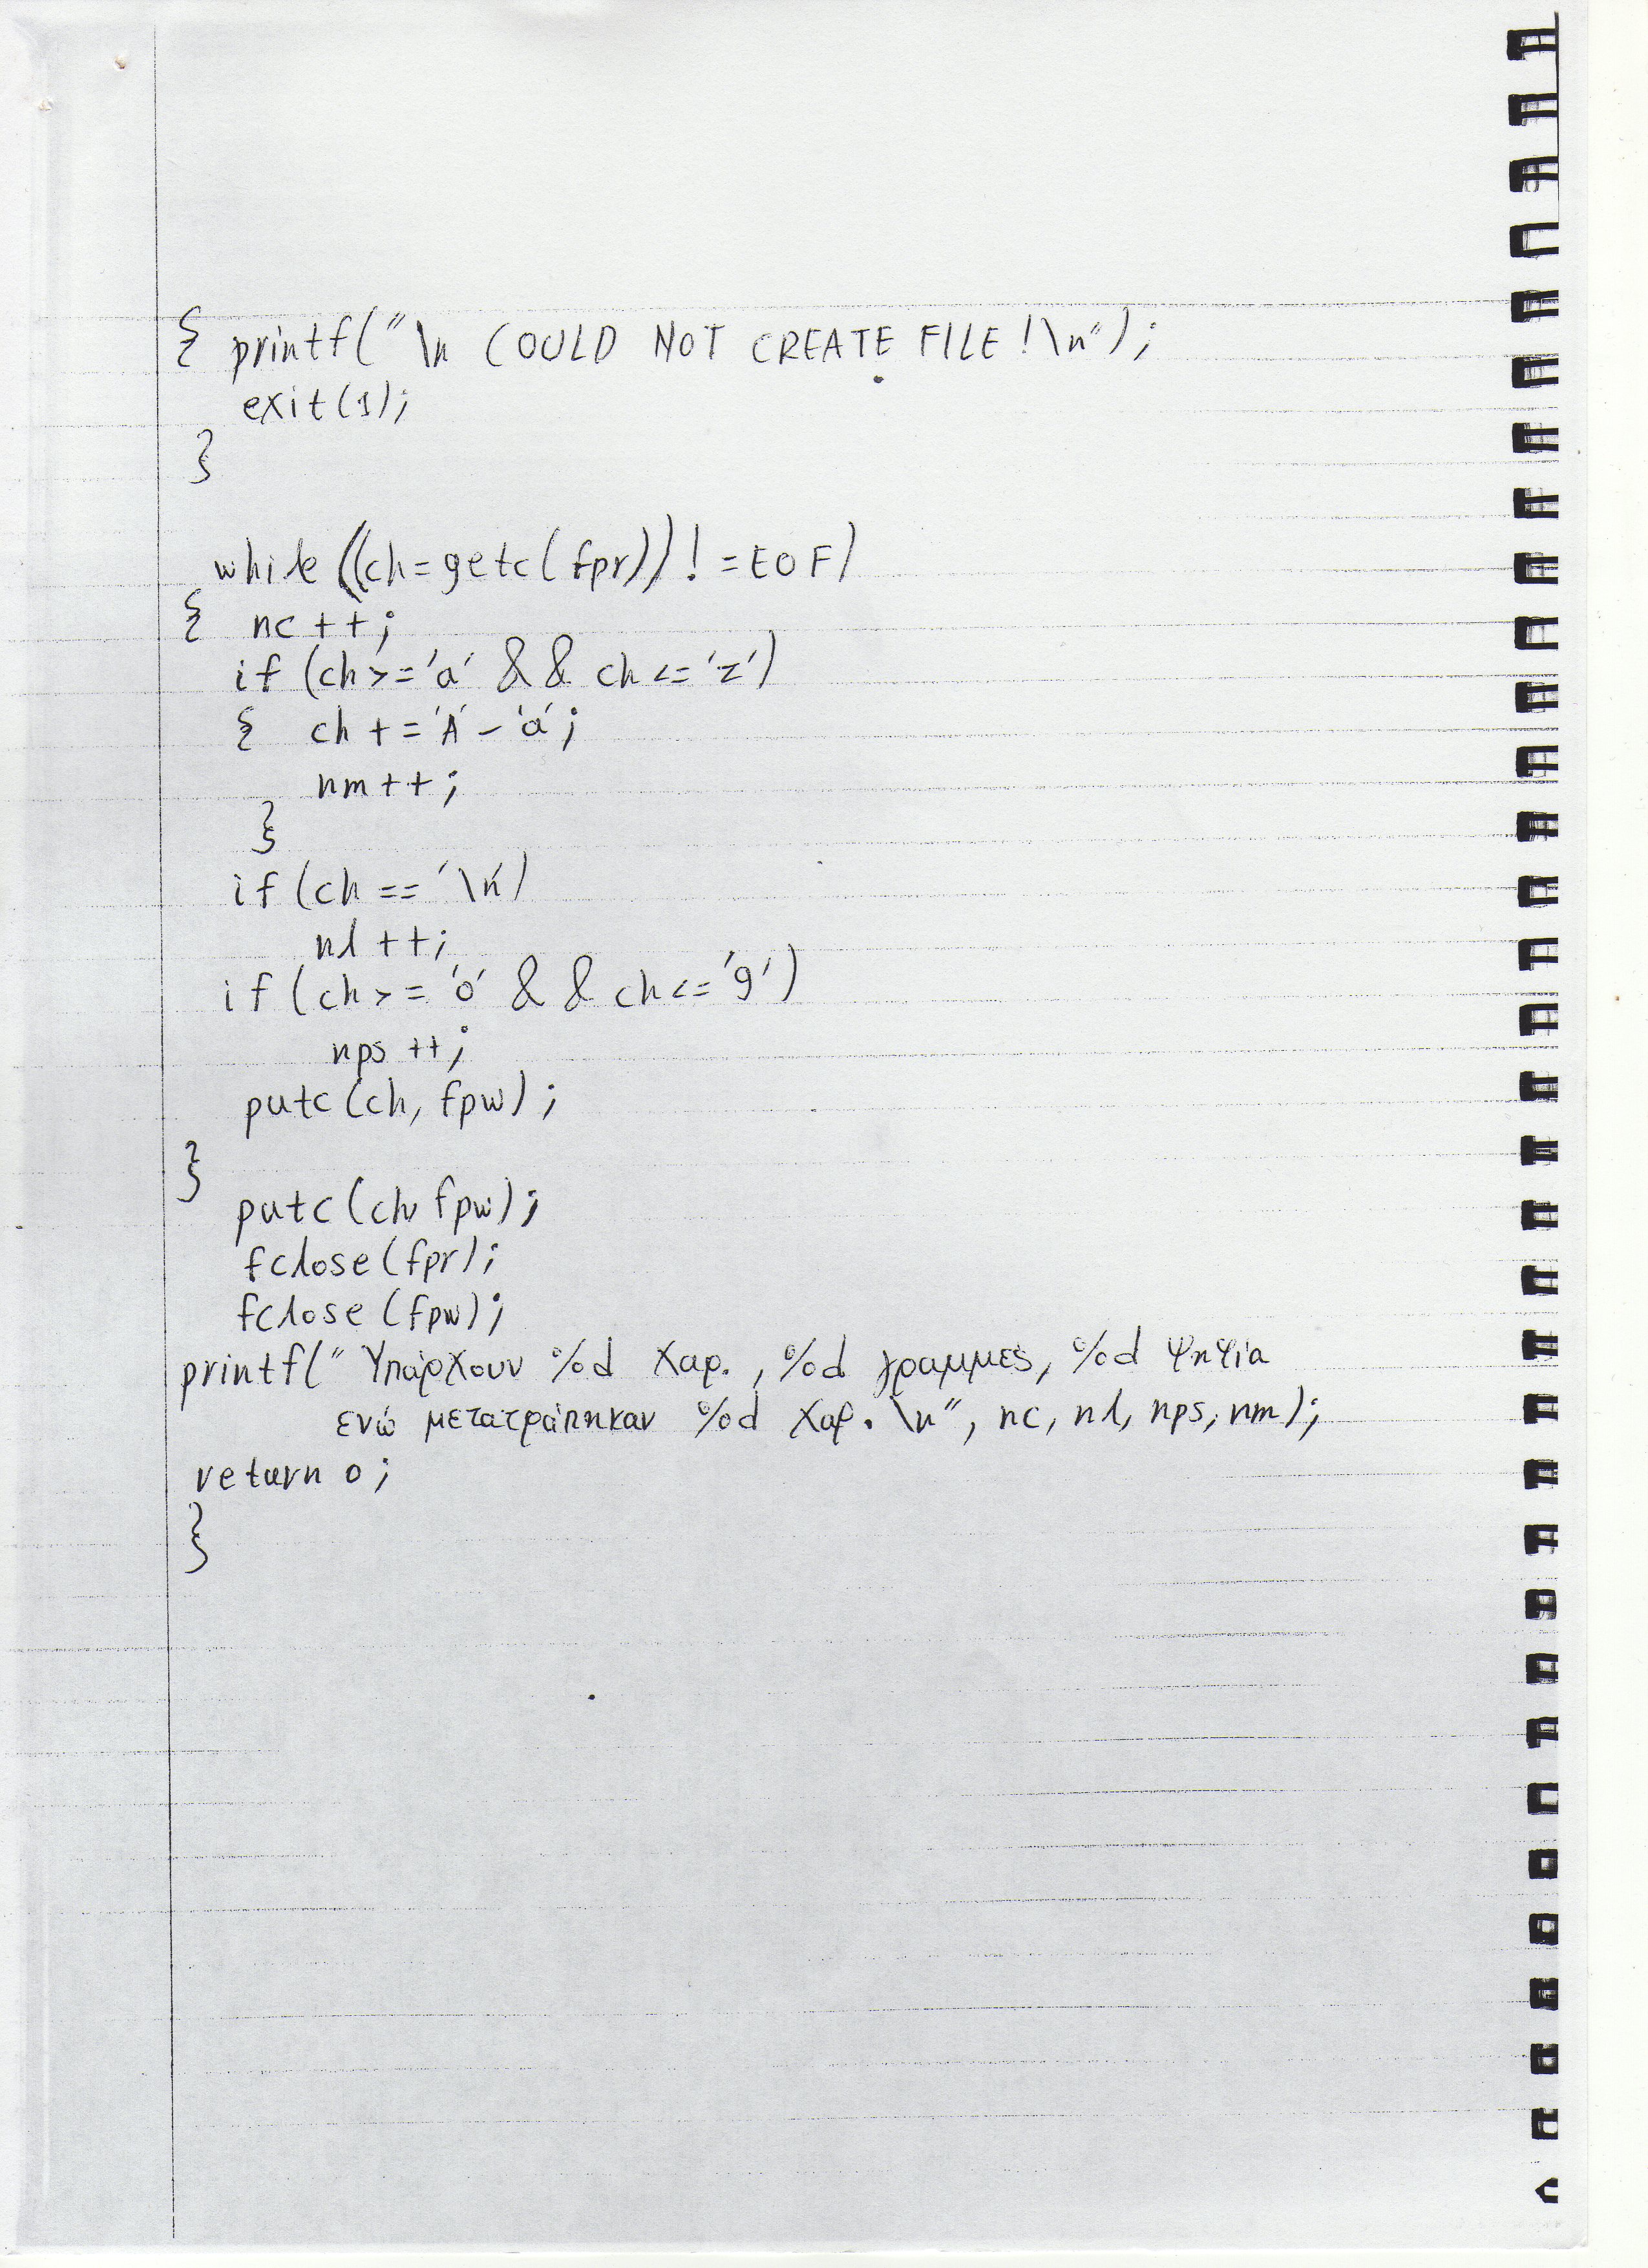 { printf("\n COULD NOT CREATE FILE!\n");
exit(1);
}
while ((ch=getc(fpr))!=EOF)
{ nc++;
if (ch>='a' && ch<='z')
{ ch+='A'-'a';
nm++;
}
if (ch=='\n')
nl++;
if (ch>='0' && ch<='9')
nps++;
putc(ch, fpw);
}
putc(ch, fpw);
fclose(fpr);
fclose(fpw);
printf("Υπάρχουν %d χαρ., %d γραμμές, %d ψηφία
ενώ μετατράπηκαν %d χαρ. \n", nc, nl, nps, nm);
return 0;
}